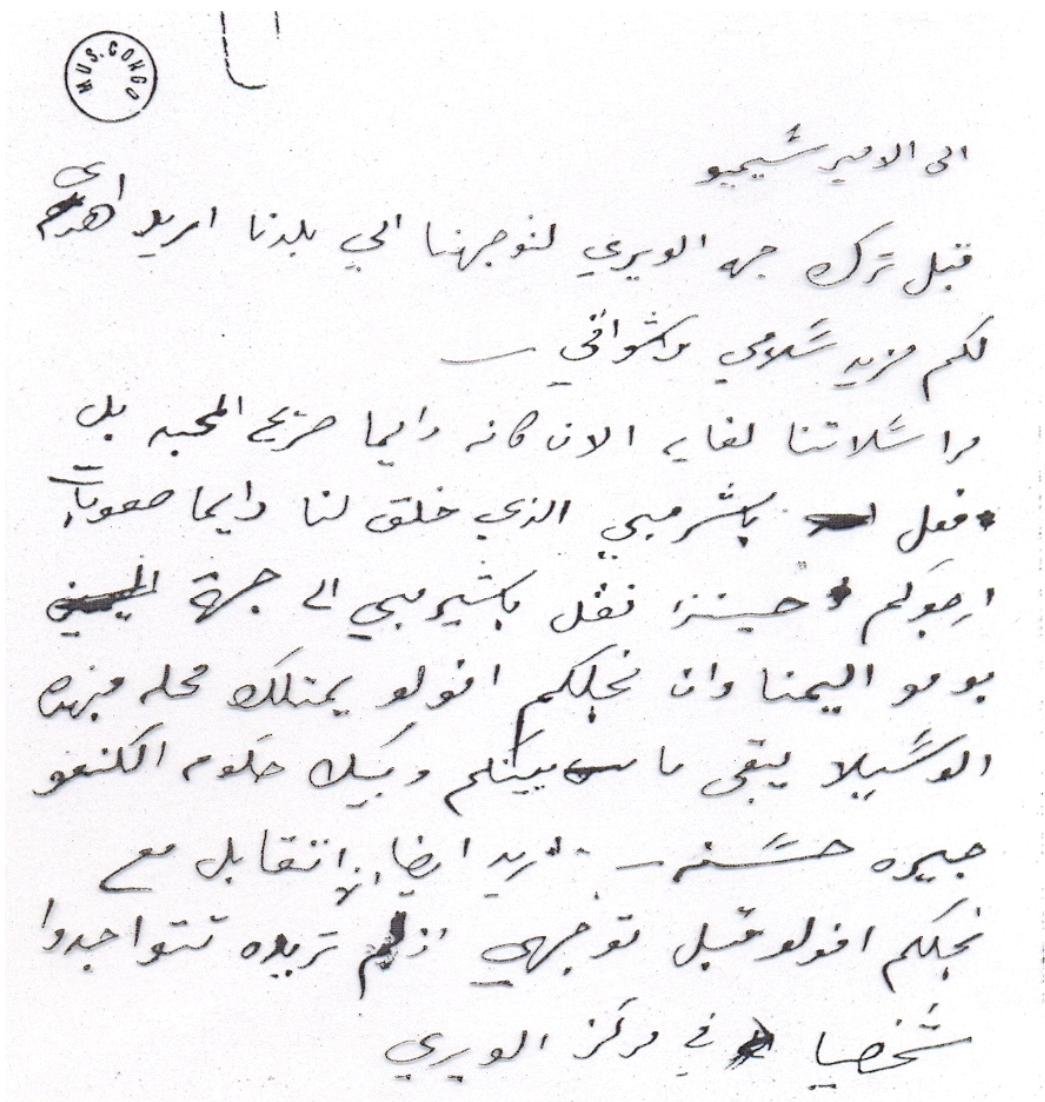 MUS. CONGO
الى الامير شيميو
قبل ترك جهه الويري لتوجهنا الي بلدنا اريد اهدي
لكم مزيد سلامي وشواقي
مراسلاتنا لغايه الان كانه دايما صريح المحبه بل
فعل باشرمبي الذي خلق لنا دايما صعوبات
ارجوكم حينئذ نقل باشيرمبي الى جهة
بومو اليمنا وان نجلكم افولو يمتلك محله فبهذه
الوسيلا يبقى ما بينكم وبيك حكومه الكنغو
جيره حسنه اريد ايضا اتقابل مع
نجلكم افولو قبل توجهي تريده تتواجدوا
شخصيا في مركز الويري